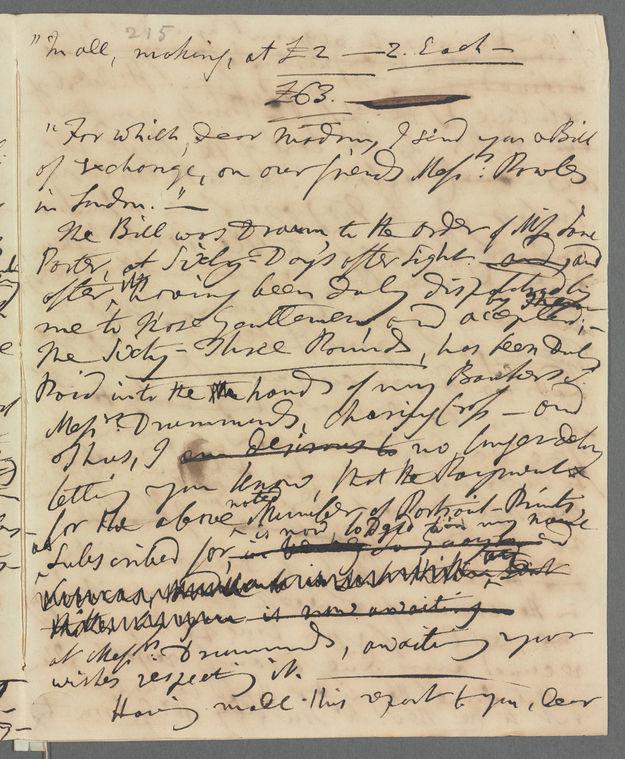 215
"In all, making, at £2 — 2. Each —
£63. —
"For which, Dear Madam, I send you a Bill
of Exchange, on our friends Messrs: Rowles
in London." —
The Bill was Drawn, to the order of Miss Jane
Porter, at Sixty-Days after Sight. and and
after, its having been Duly dispatched by
me to those Gentlemen, and accepted; —
The Sixty-Three Pounds, has been Duly
Paid into the hands of my Bankers
Messrs. Drummonds, Charing Cross — and
thus, I am desirous to no longer delay
letting you know, that the Payment
for the above noted Number of Portrait-Prints
as Subscribed for, is now lodged in my name
it is now awaiting
at Messrs. Drummonds, awaiting your
wishes respecting it.
Having made this report to you, Dear